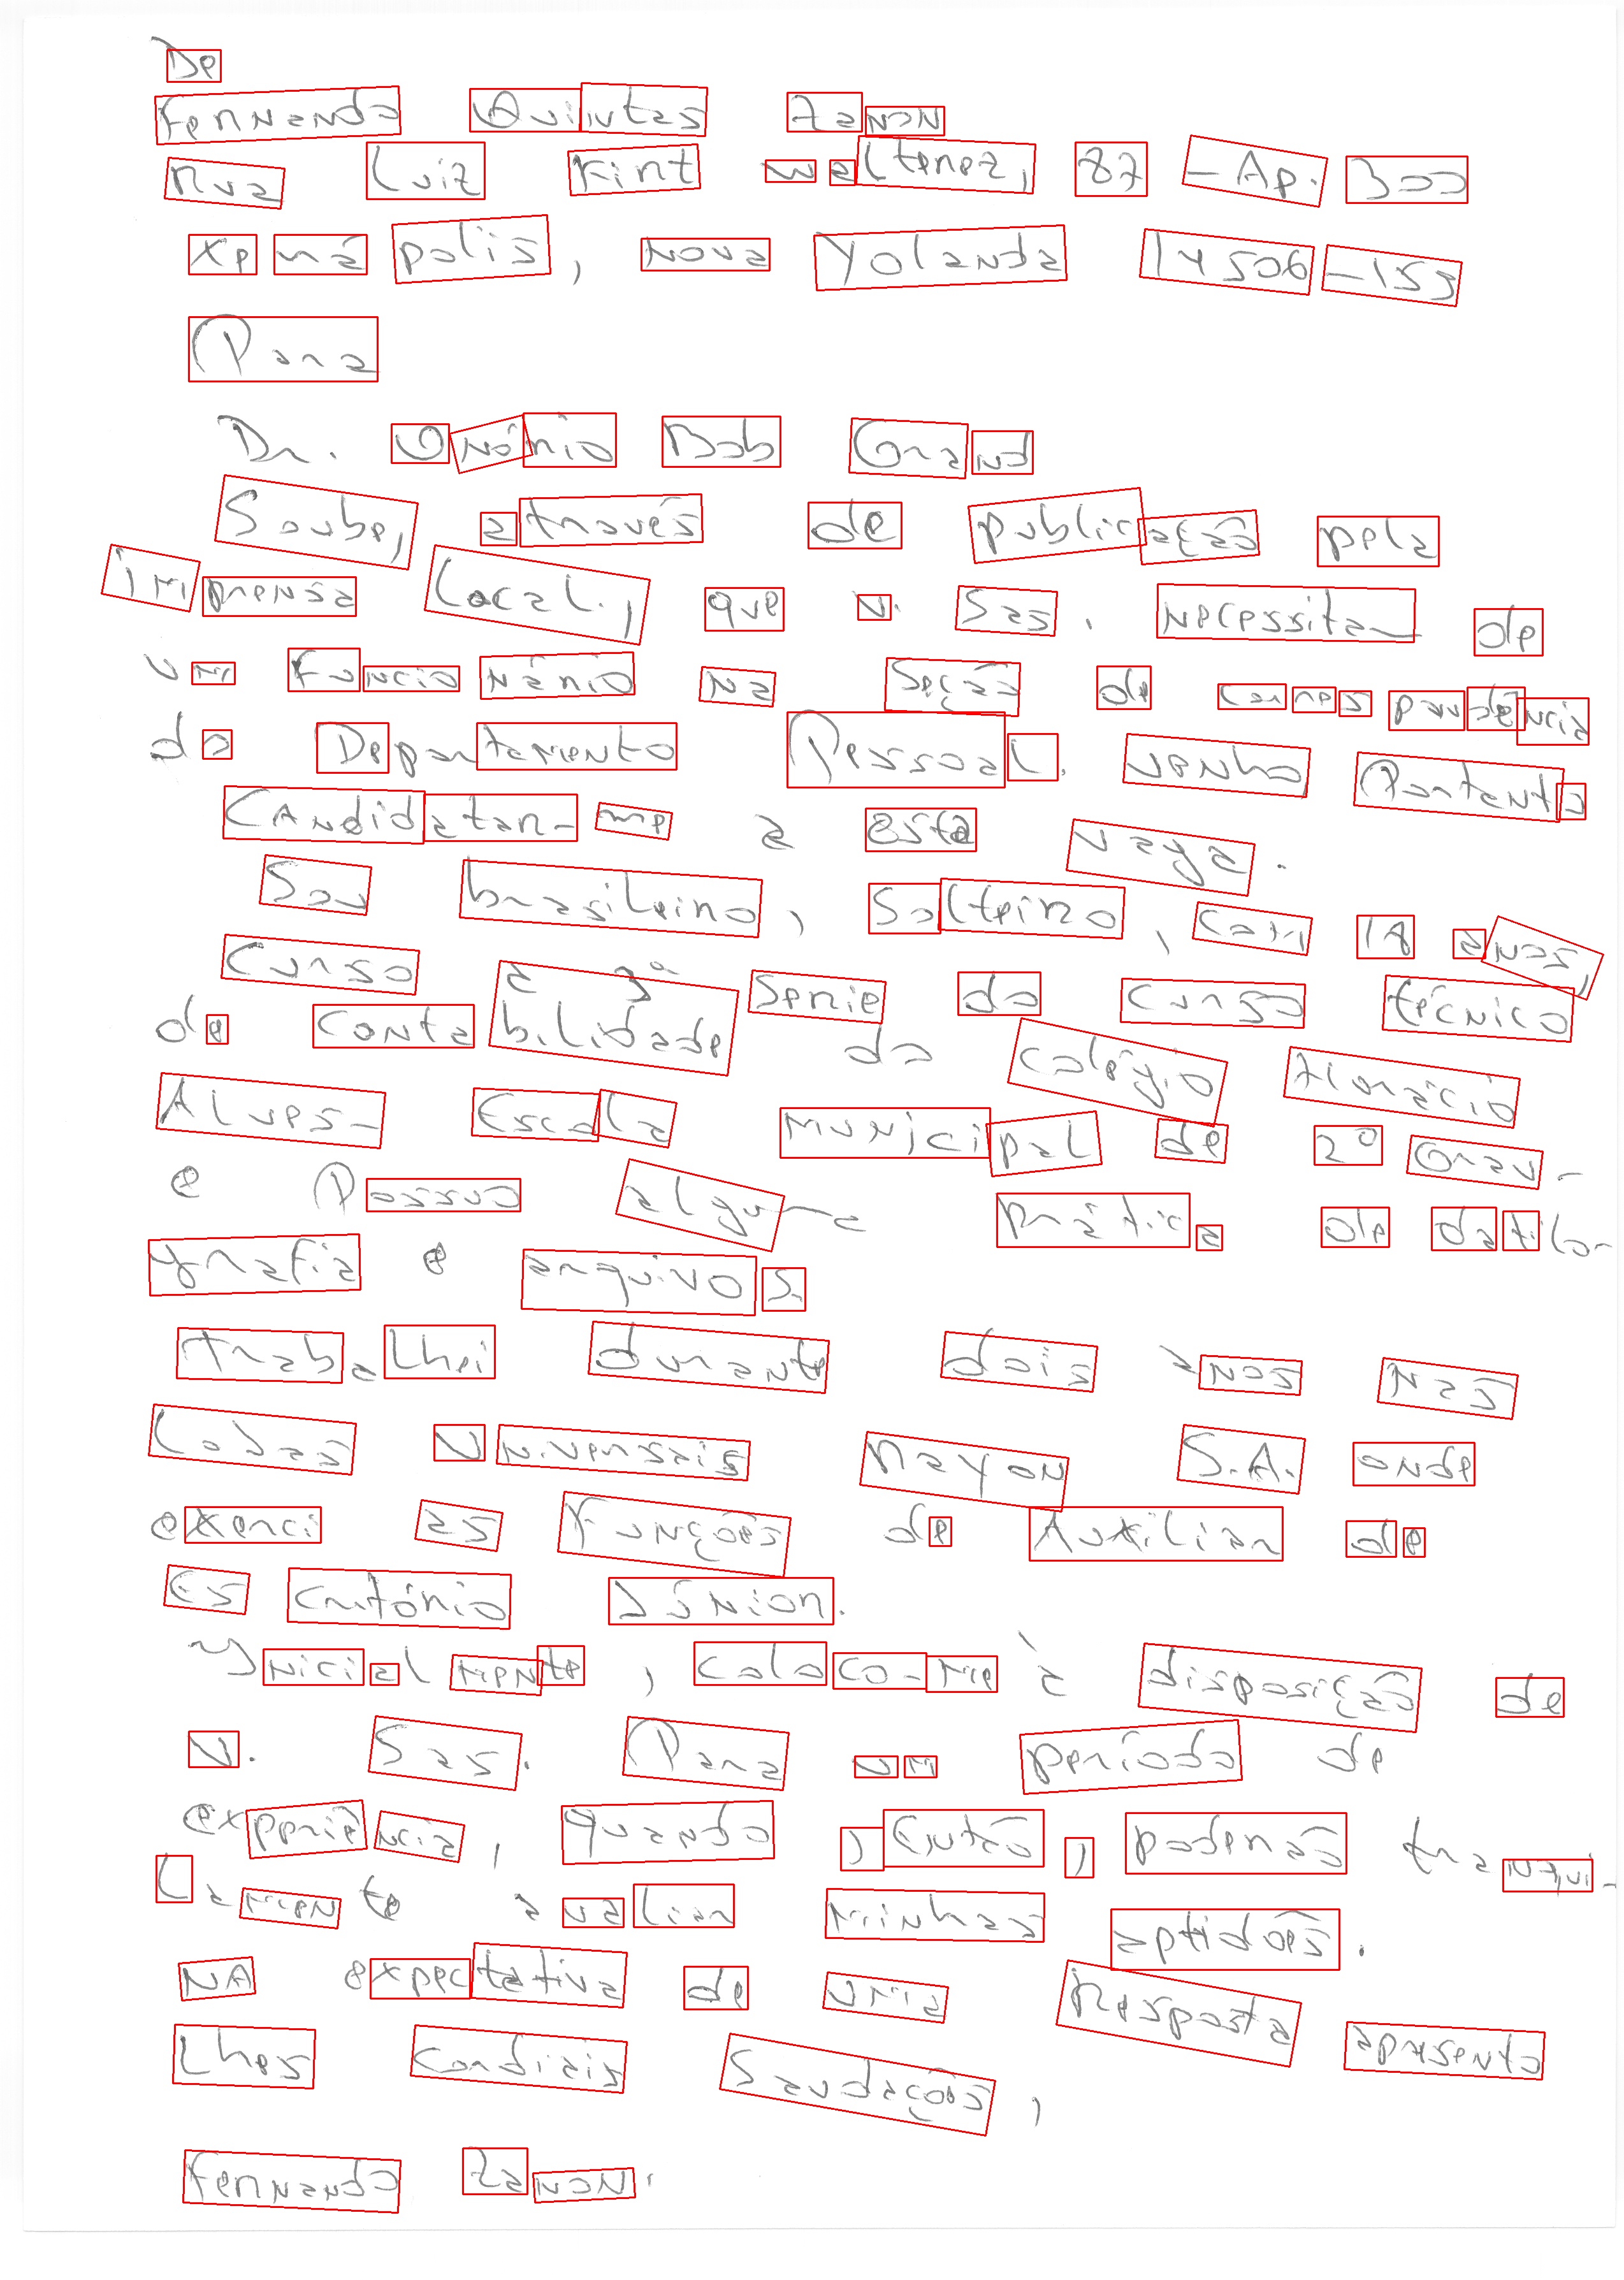 De
Fernando Quintas Zanon
Rua Luiz Kint Walterez, 87 - Ap. 300
Xeranápolis, Nova Yolanda 14506-153
Para
Dr. Onório Bob Grand
Soube, através de publicação pela
imprensa local, que V. Sas. necessitam de
um funcionário na Seção de correspondência
do Departamento Pessoal. Venho, Portanto
CAndidatar-me a esta vaga.
Sou brasileiro, Solteiro, com 18 anos,
Curso a 3ª Serie do Curso técnico
de Contabilidade do Colégio Horácio
Alves - Escola Municipal de 2º Grau -
e Possuo alguma prática de datilo-
grafia e arquivos.
Trabalhei durante dois anos nas
Lojas Universais Rayon S.A. onde
exerci as Funções de Auxiliar de
Escritório Júnior.
Ynicialmente, coloco-me à disposição de
V. Sas. Para um período de
experiência, quando, então, poderão tranqui-
lamente avaliar minhas aptidões.
NA expectativa de uma Resposta apresento
Lhes Cordiais Saudações,
Fernando Zanon.